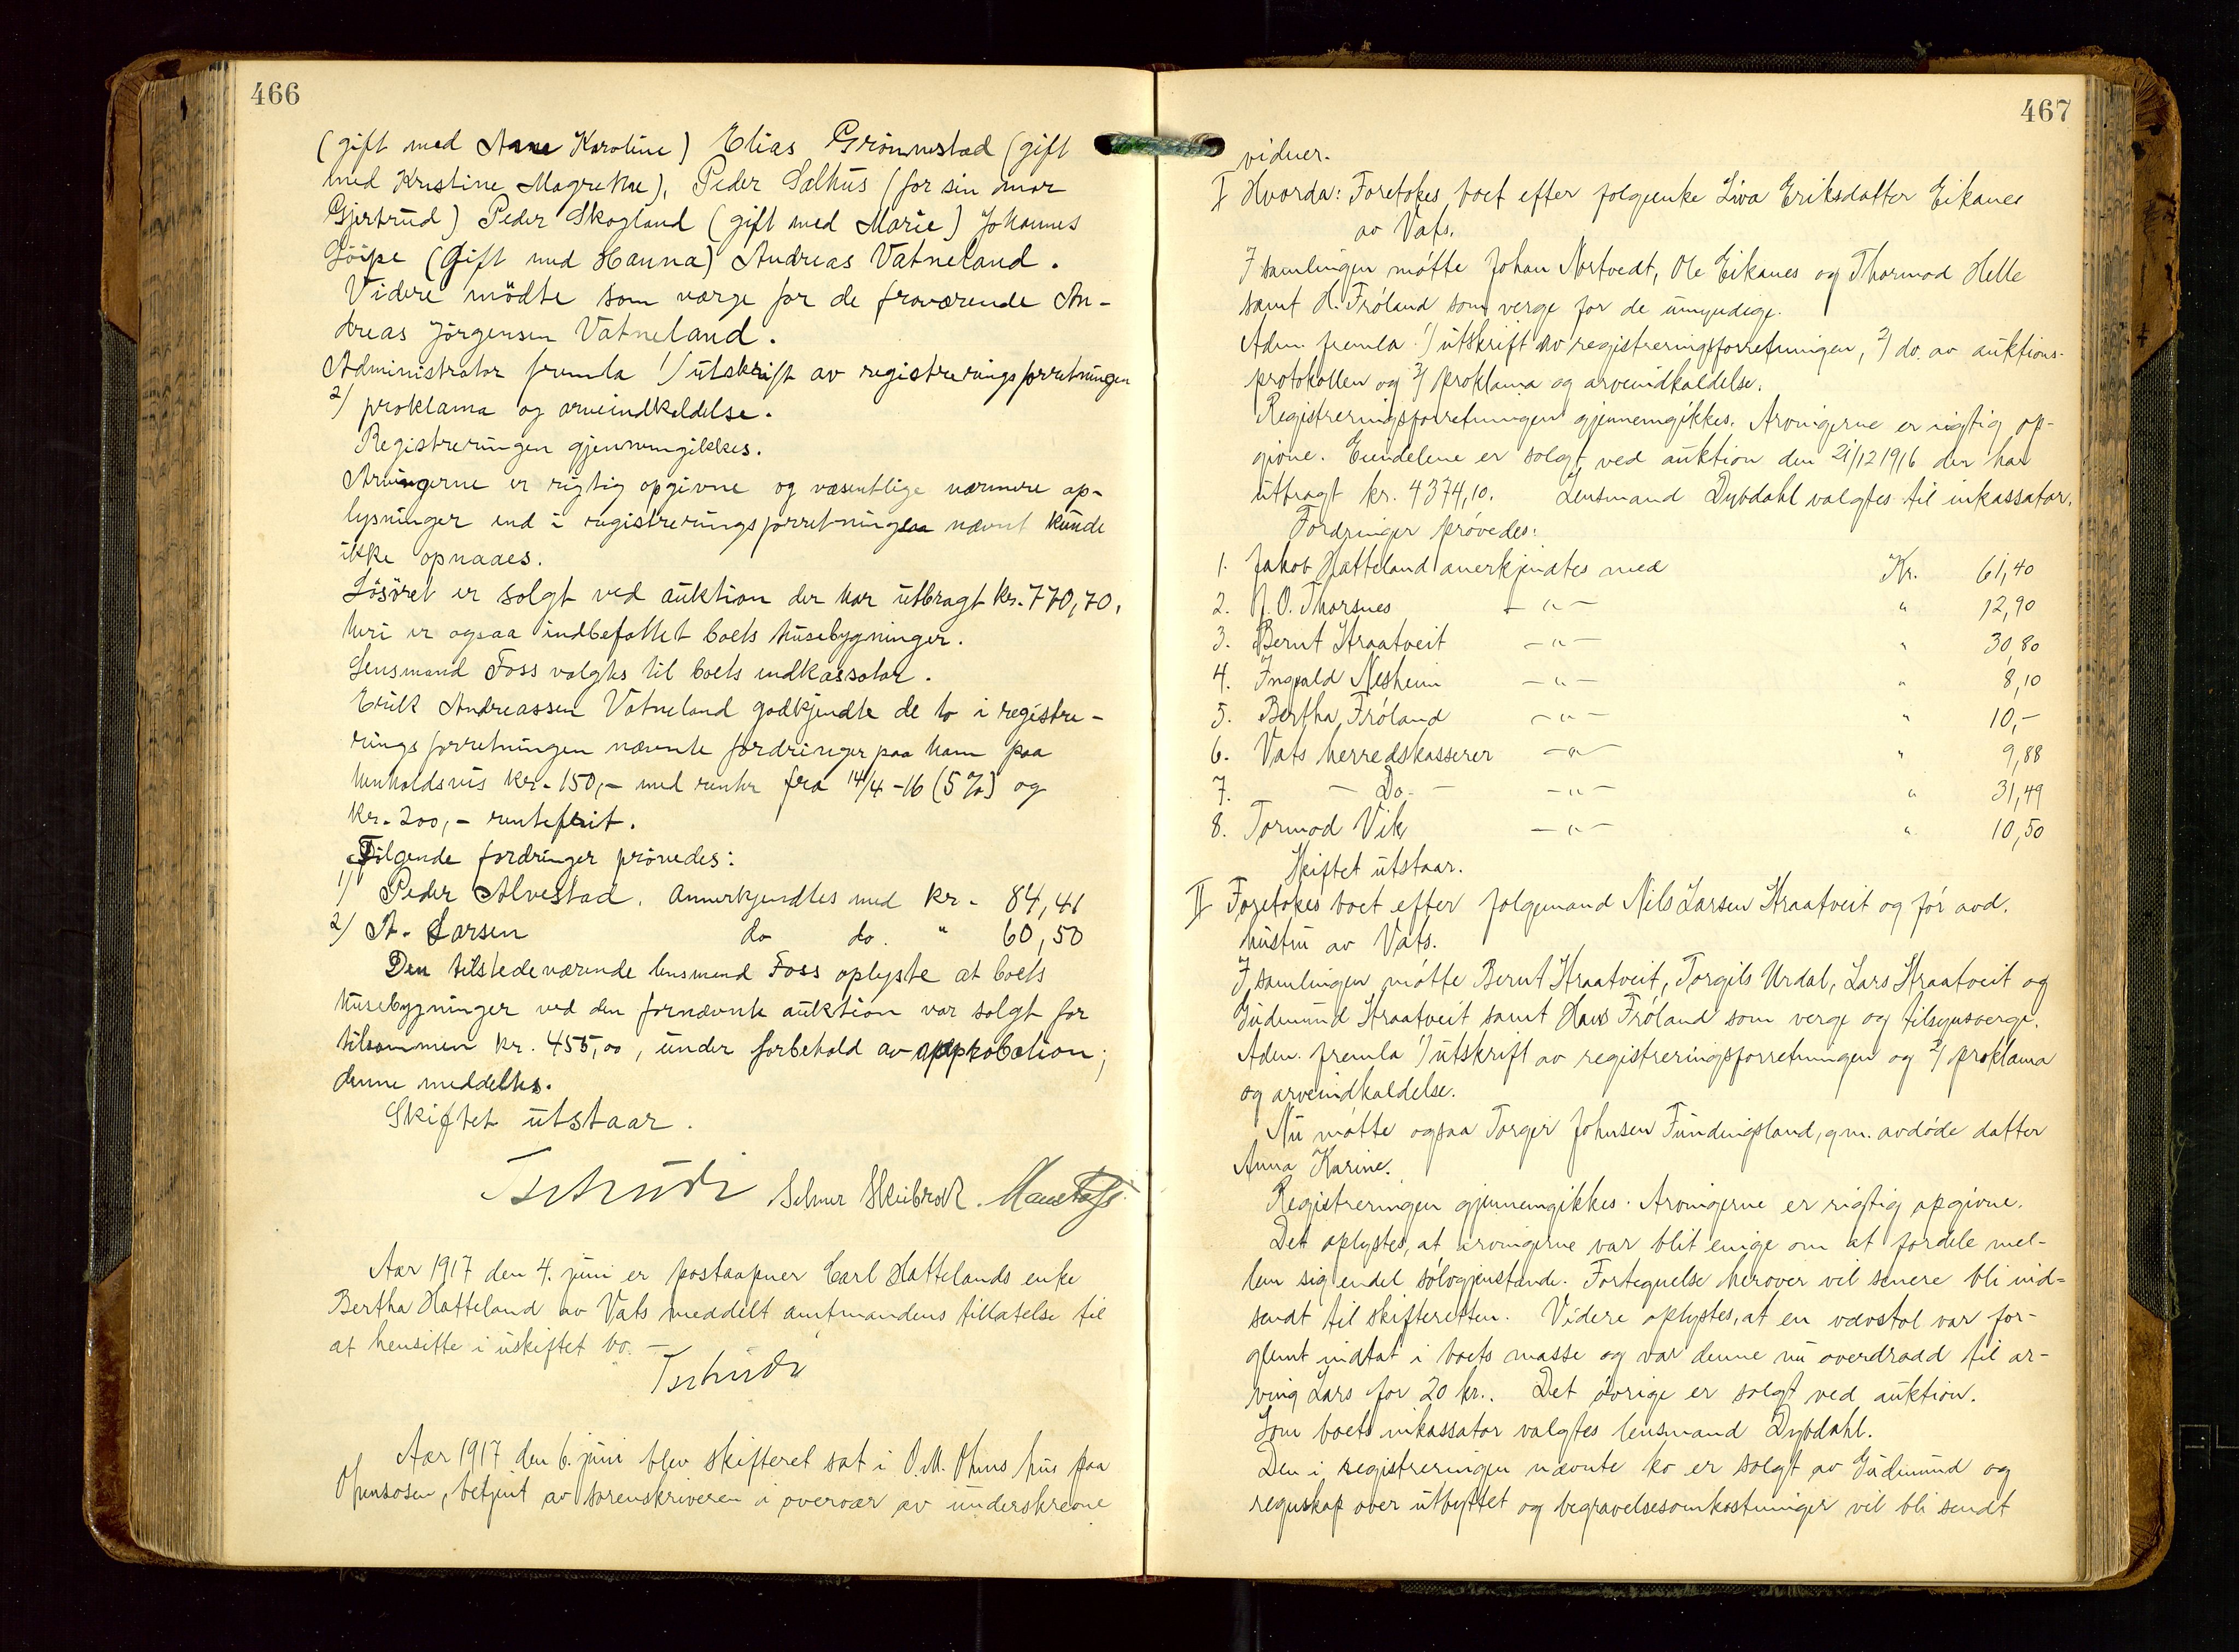 466
(gift med Anne Karoline) Elias Grönnestad (gift
med Kristine Magrethe), Peder Salhus (for sin mor
Gjertrud) Peder Skogland (gift med Marie) Johannes
Löipe (Gift med Hanna) Andreas Vatneland.
Videre mödte som værge for de fraværende An-
dreas Jörgensen Vatneland.
Administrator fremla 1/ utskrift av registreringsforretningen
2/ proklama og arveindkaldelse.
Registreringen gjennemgikkes.
Arvingerne er rigtig opgivne og væsentlige nærmere op-
lysninger end i registreringsforretningen nævnt kunde
ikke opnaaes.
Lösöret er solgt ved auktion der har utbragt kr. 770,70,
heri er ogsaa indbefattet boets husebygninger.
Lensmand Foss valgtes til boets indkassator.
Erik Andreassen Vatneland godkjendte de to i registre-
ringsforretningen nævnte fordringer paa ham paa
henholdsvis kr. 150,- med renter fra 14/4-16 (5%) og
kr. 200,- rentefrit.
Fölgende fordringer prövedes:
1) Peder Alvestad. Annerkjendtes med kr. 84,41
2) A. Larsen do do. " 60,50
Den tilstedeværende lensmand Foss oplyste at boets
husebygninger ved den fornævnte auktion var solgt for
tilsammen kr. 455,00, under forbehold av approbation;
denne meddeltes.
Skiftet utstaar.
Tschudi Selmer Skeibrok. Hans Foss.
Aar 1917 den 4. juni er postaapner Carl Hattelands enke
Bertha Hatteland av Vats meddelt amtmandens tillatelse til
at hensitte i uskiftet bo. —
Tschudi
Aar 1917 den 6. juni blev skifteret sat i O. M. Ølens hus paa
Ølensosen, betjent av sorenskriveren i overvær av underskrevne
467
vidner.
I Hvorda: Foretokes boet efter folgeenke Siva Eriksdatter Eikanes
av Vats.
I samlingen møtte Johan Nortvedt, Ole Eikanes og Thormod Helle
samt H. Frøland som verge for de umyndige.
Adm. fremla 1/ utskrift av registreringsforretningen, 2/ do. av auktions-
protokollen og 3/ proklama og arveindkaldelse.
Registreringsforretningen gjennemgikkes. Arvingerne er rigtig op-
givne. Eiendelene er solgt ved auktion den 21/12 1916 der har
utbragt kr. 4374,10. Lensmand Dybdahl valgtes til inkassator.
Fordringer prøvedes:
1. Jakob Hatteland anerkjendtes med Kr. 61,40
2. N. O. Thorsnes — " — " 12,90
3. Bernt Straatveit — " — " 30,80
4. Ingvald Nesheim — " — " 8,10
5. Bertha Frøland — " — " 10,-
6. Vats herredskasserer — " — " 9,88
7. — Do. — — " — " 31,49
8. Tormod Vik — " — " 10,50
Skiftet utstaar.
II Foretokes boet efter følgemand Nils Larsen Straatveit og før avd.
hustru av Vats.
I samlingen møtte Bernt Straatveit, Torgils Urdal, Lars Straatveit og
Gudmund Straatveit samt Hans Frøland som verge og tilsynsverge.
Adm. fremla 1/ utskrift av registreringsforretningen og 2/ proklama
og arveindkaldelse.
Nu møtte ogsaa Torger Johnsen Fundingsland, g.m. avdøde datter
Anna Karine.
Registreringen gjennemgikkes. Arvingerne er rigtig opgivne.
Det oplystes, at arvingerne var blit enige om at fordele mel-
lem sig endel sølvgjenstande. Fortegnelse herover vil senere bli ind-
sendt til skifteretten. Videre oplystes, at en vævstol var for-
glemt indtat i boets masse og var denne nu overdrad til ar-
ving Lars for 20 kr. Det øvrige er solgt ved auktion.
Som boets inkassator valgtes lensmand Dybdahl.
Den i registreringen nævnte ko er solgt av Gudmund og
regnskap over utbyttet og begravelsesomkostninger vil bli sendt